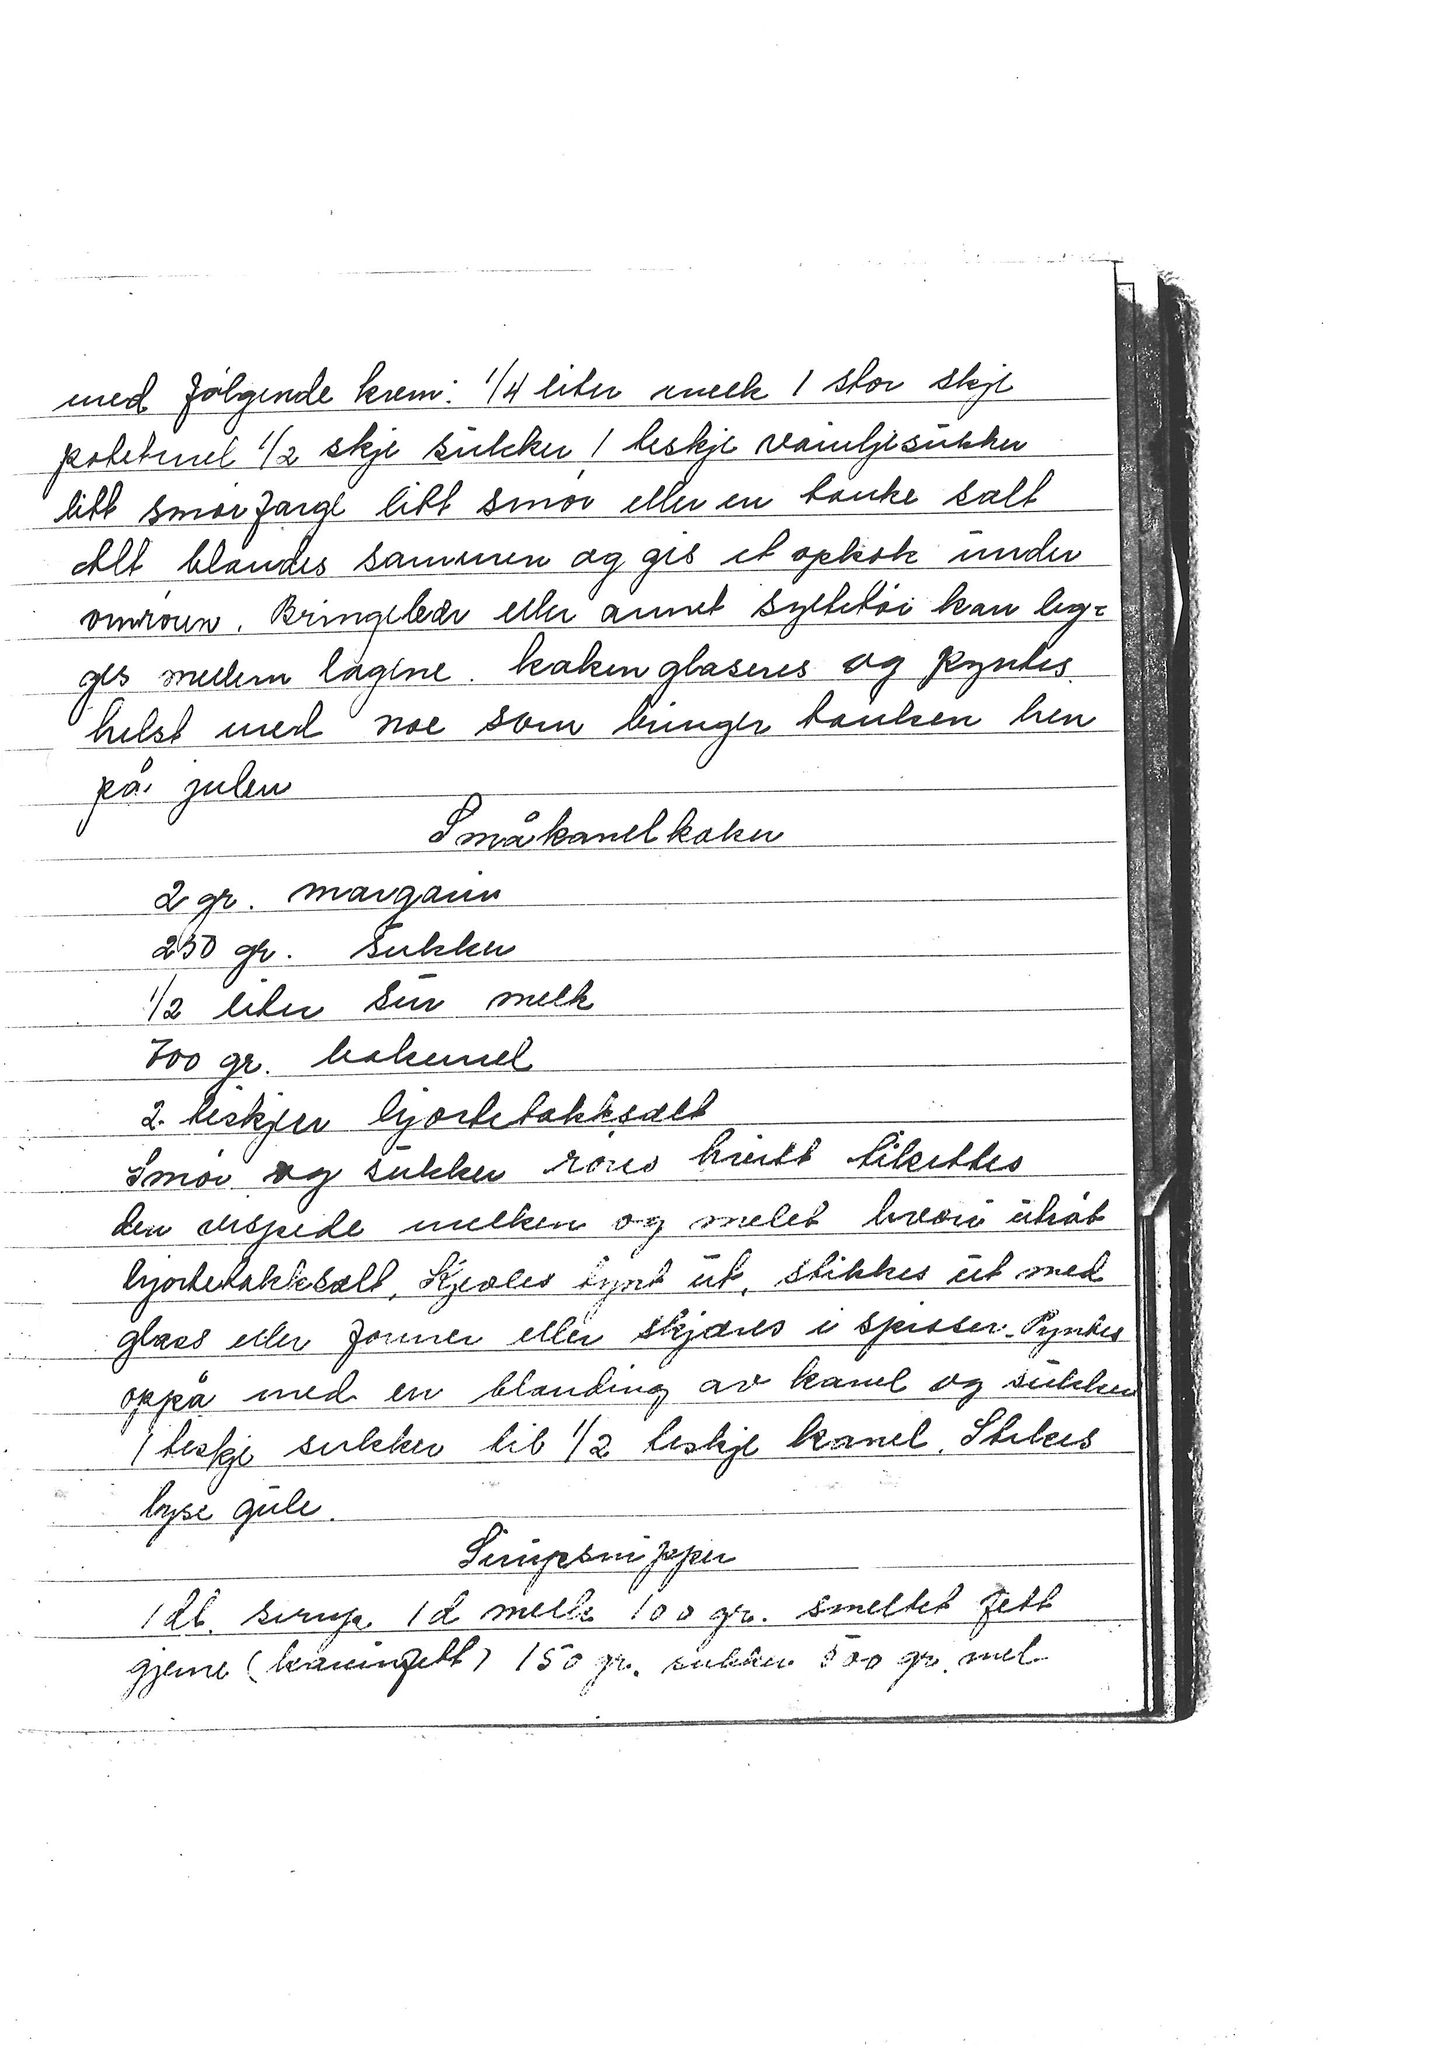 med følgende krem: 1/4 liter melk 1 stor skje
potetmel 1/2 skje sukker 1 teskje vaniljesukker
litt smørfarge litt smør eller en tanke salt
Alt blandes sammen og gis et opkok under
omrøren. Bringebær eller annet syltetøi kan leg=
ges mellem lagene. kaken glaseres og pyntes
helst med noe som bringer tanken hen
på julen
Småkanelkaker
2 gr. margarin
250 gr. sukker
1/2 liter sur melk
700 gr. hakemel
2. teskjeer hjortetakksalt
Smør og sukker røres hvitt tilsettes
den vispede melken og melet hvori
hjortetakksalt, Kjevles tynt ut, stikkes ut med
glass eller former eller skjæres i spisser. Pyntes
oppå med en blanding av kanel og sukker
1 teskje sukker til 1/2 teskje kanel. Stekes
lyse gule.
Sirupsnipper
1 dl. sirup 1 d melk 100 gr. smeltet fett
gjerne 150 gr. sukker 500 gr. mel